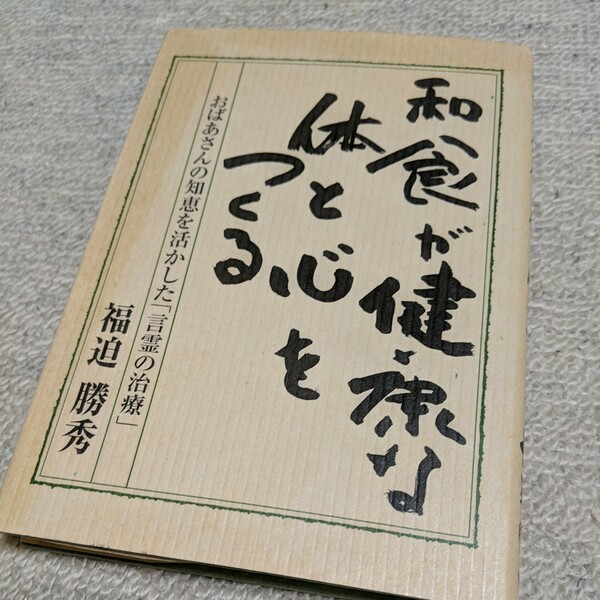 和食が健康な
体と心を
つくる
おばあさんの知恵を活かした「言霊の治療」
福迫 勝秀